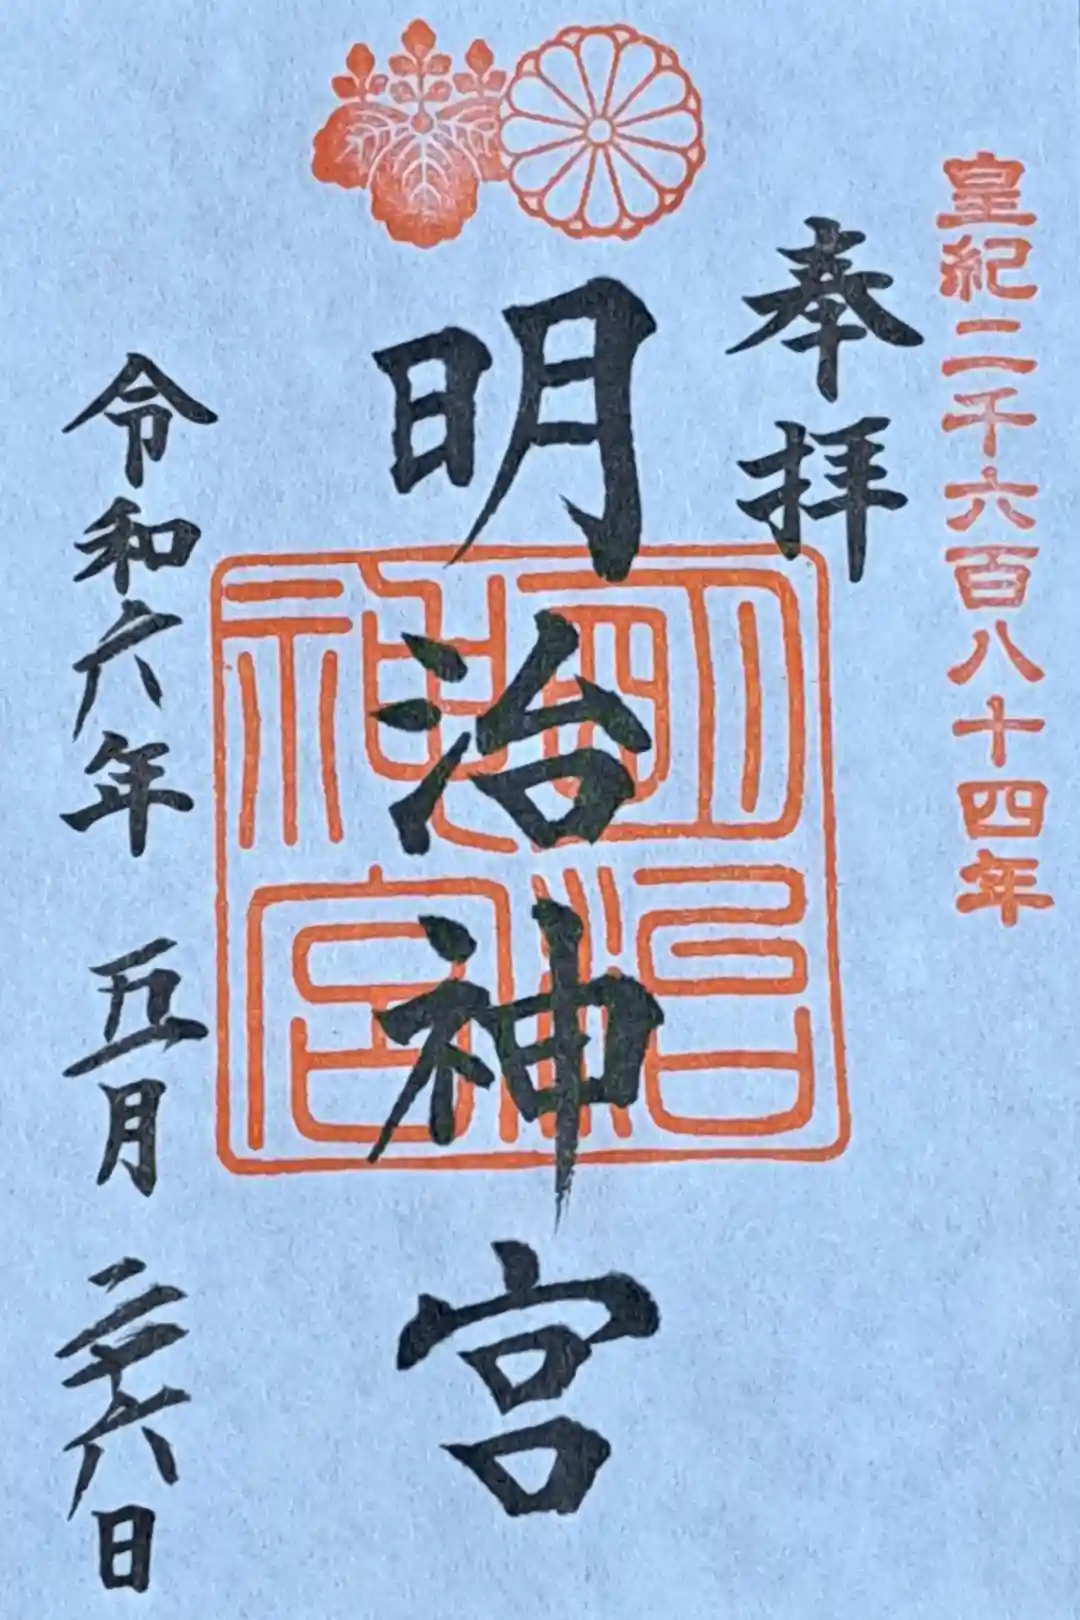 皇紀二千六百八十四年
奉拝
明治神宮
明治神宮
令和六年 五月 二十六日